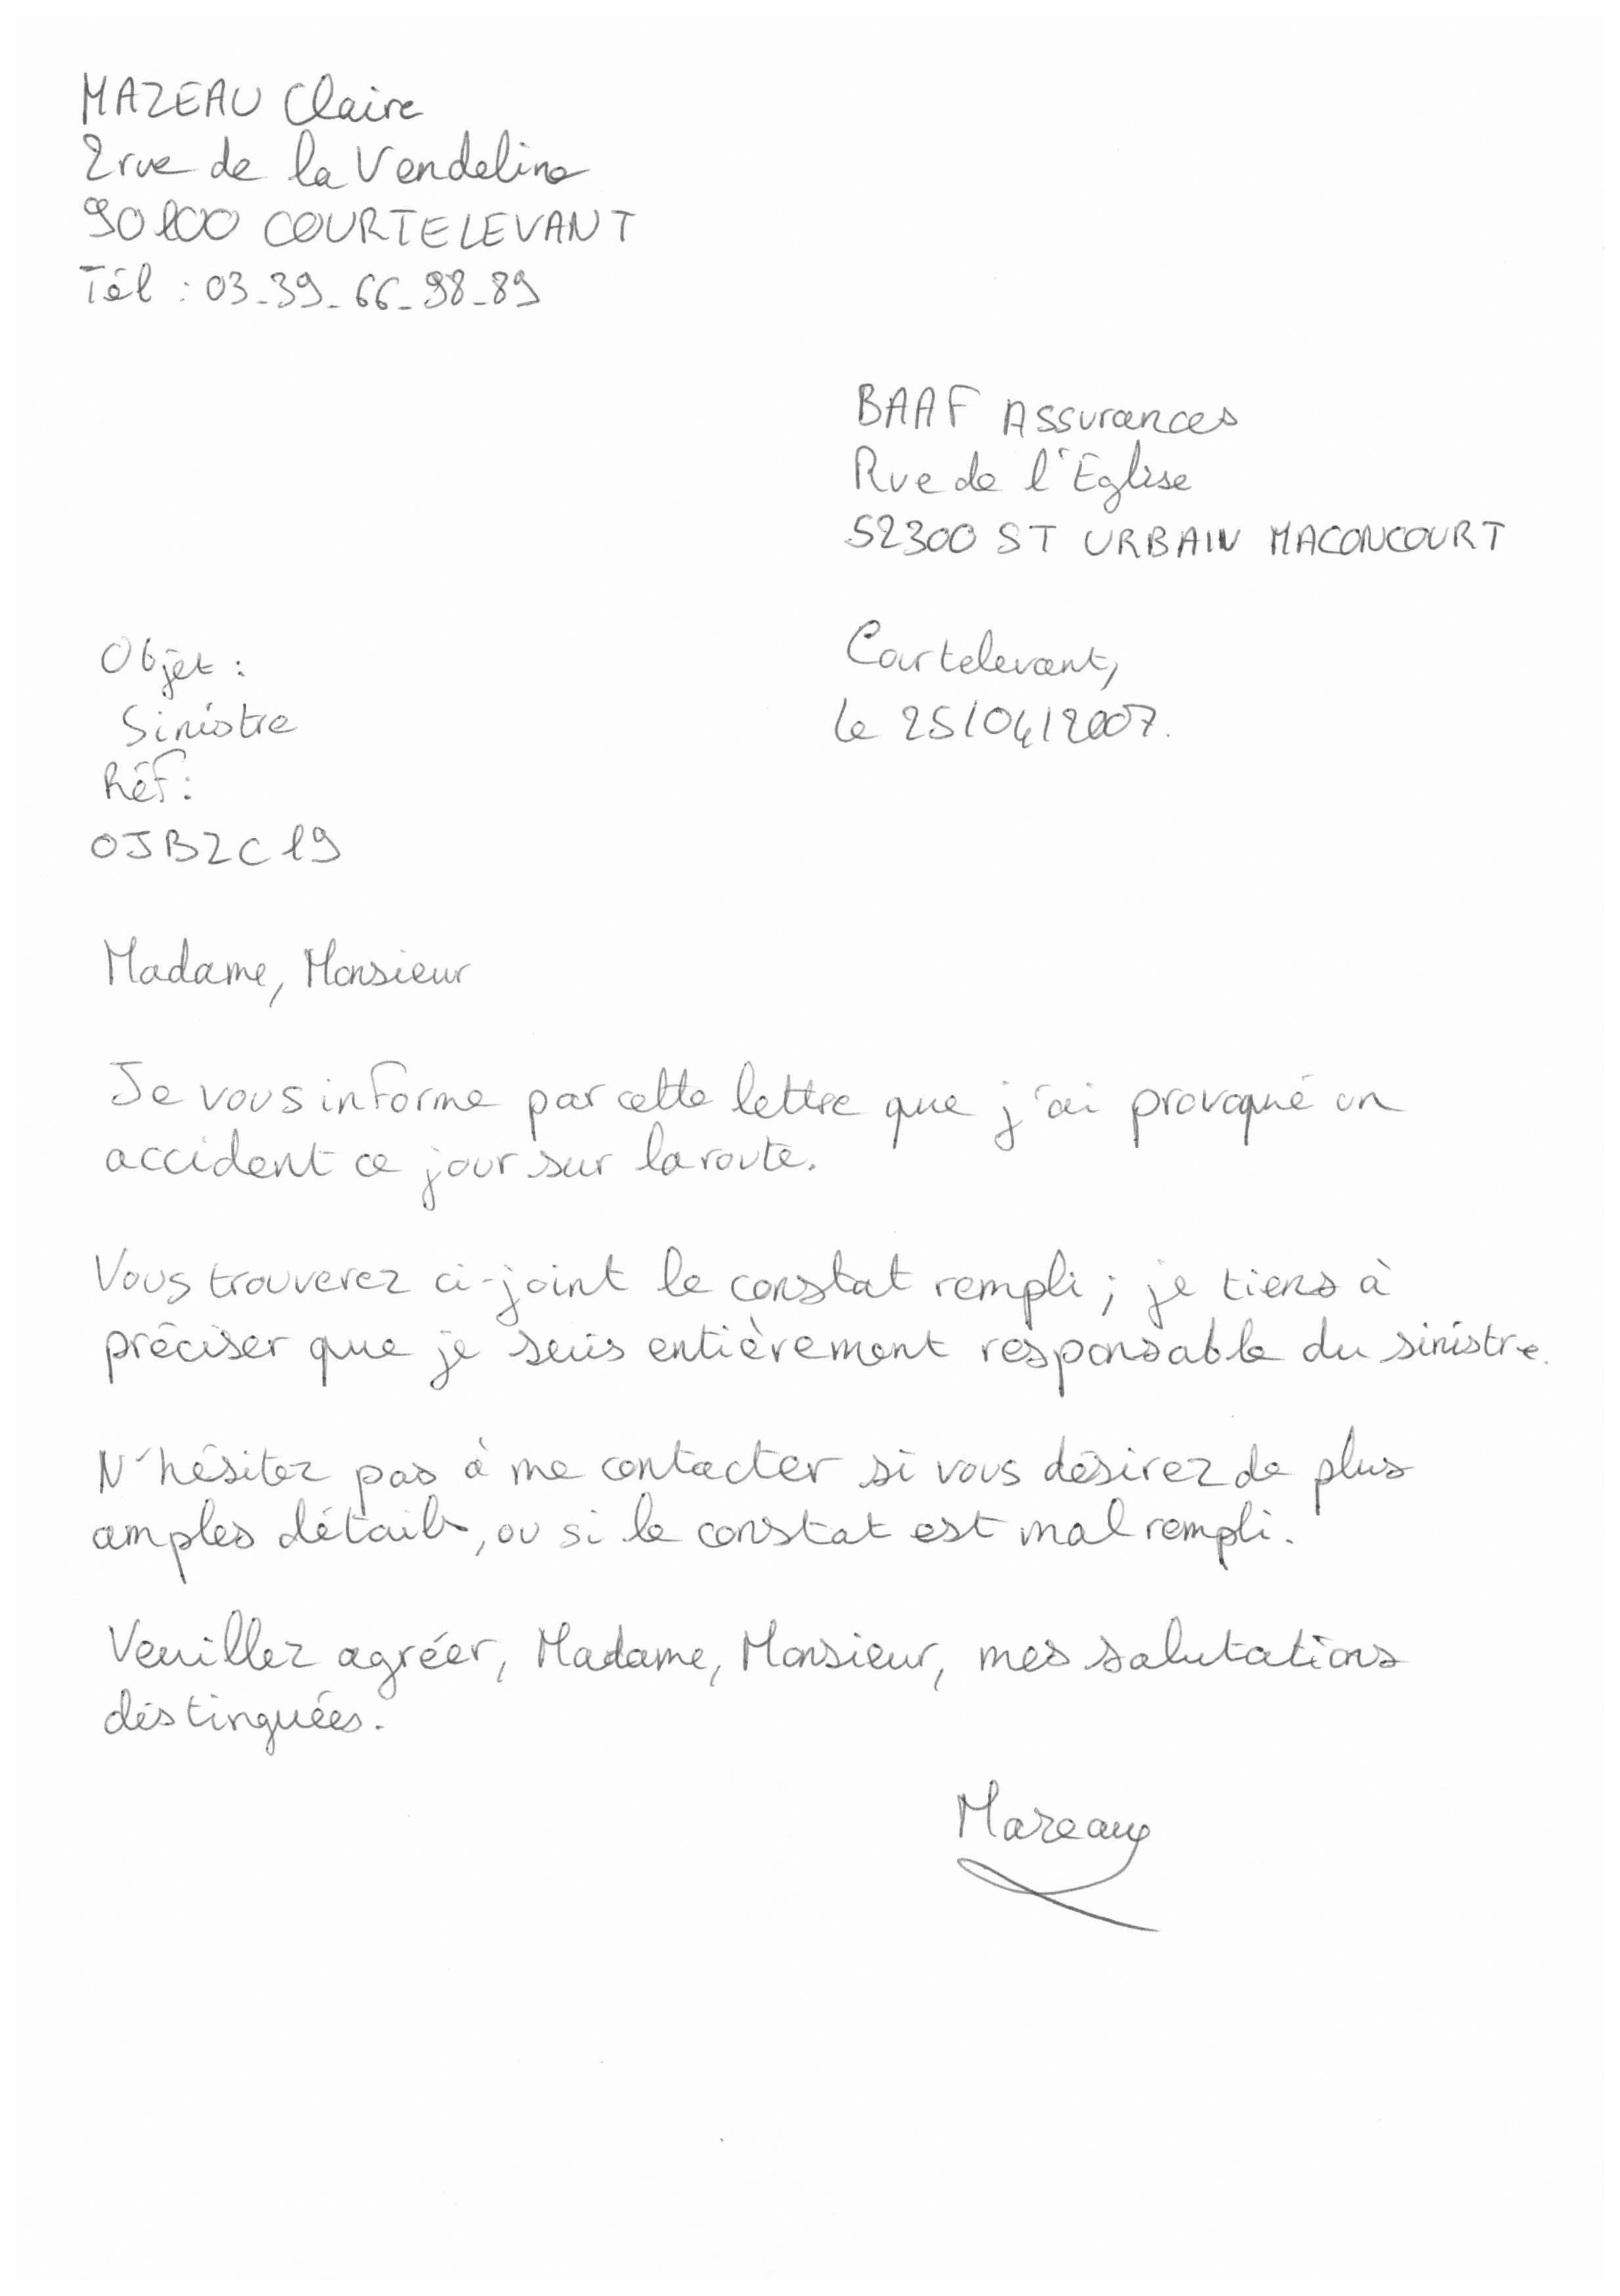 MAZEAU Claire
2 rue de la Vendeline
90100 COURTELEVANT
Tél : 03_39_66_98_89
BAAF Assurances
Rue de l'Eglise
52300 ST URBAIN MACONCOURT
Objet :
Sinistre
Réf :
OJBZC19
Courtelevant,
le 25/04/2007.
Madame, Monsieur
Je vous informe par cette lettre que j'ai provoqué un
accident ce jour sur la route.
Vous trouverez ci-joint le constat rempli ; je tiens à
préciser que je suis entièrement responsable du sinistre.
N'hésitez pas à me contacter si vous désirez de plus
amples détails, ou si le constat est mal rempli.
Veuillez agréer, Madame, Monsieur, mes salutations
distinguées.
Mazeau